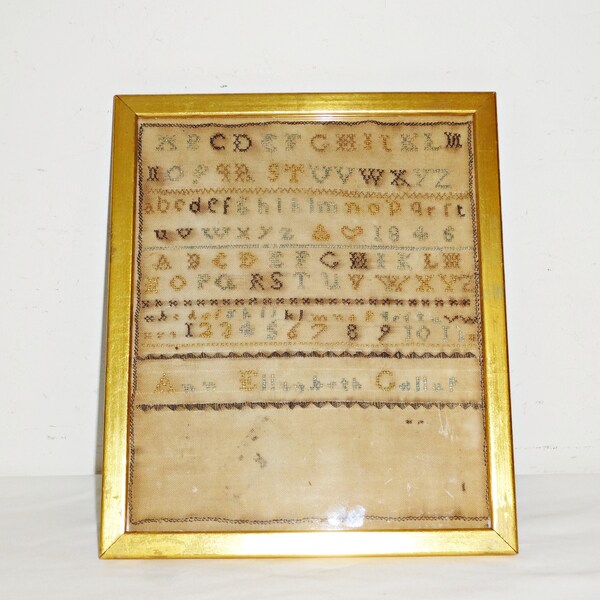 A B C D E F G H I K L M
N O P Q R S T U V W X Y Z
a b c d e f g h i k l m n o p q r s t
u v w x y z 1846
A B C D E F G H I K L M
N O P Q R S T U V W X Y Z
a b c d e f g h i k l m n o p q r s t u v w
1 2 3 4 5 6 7 8 9 10 11
Ann Elizabeth